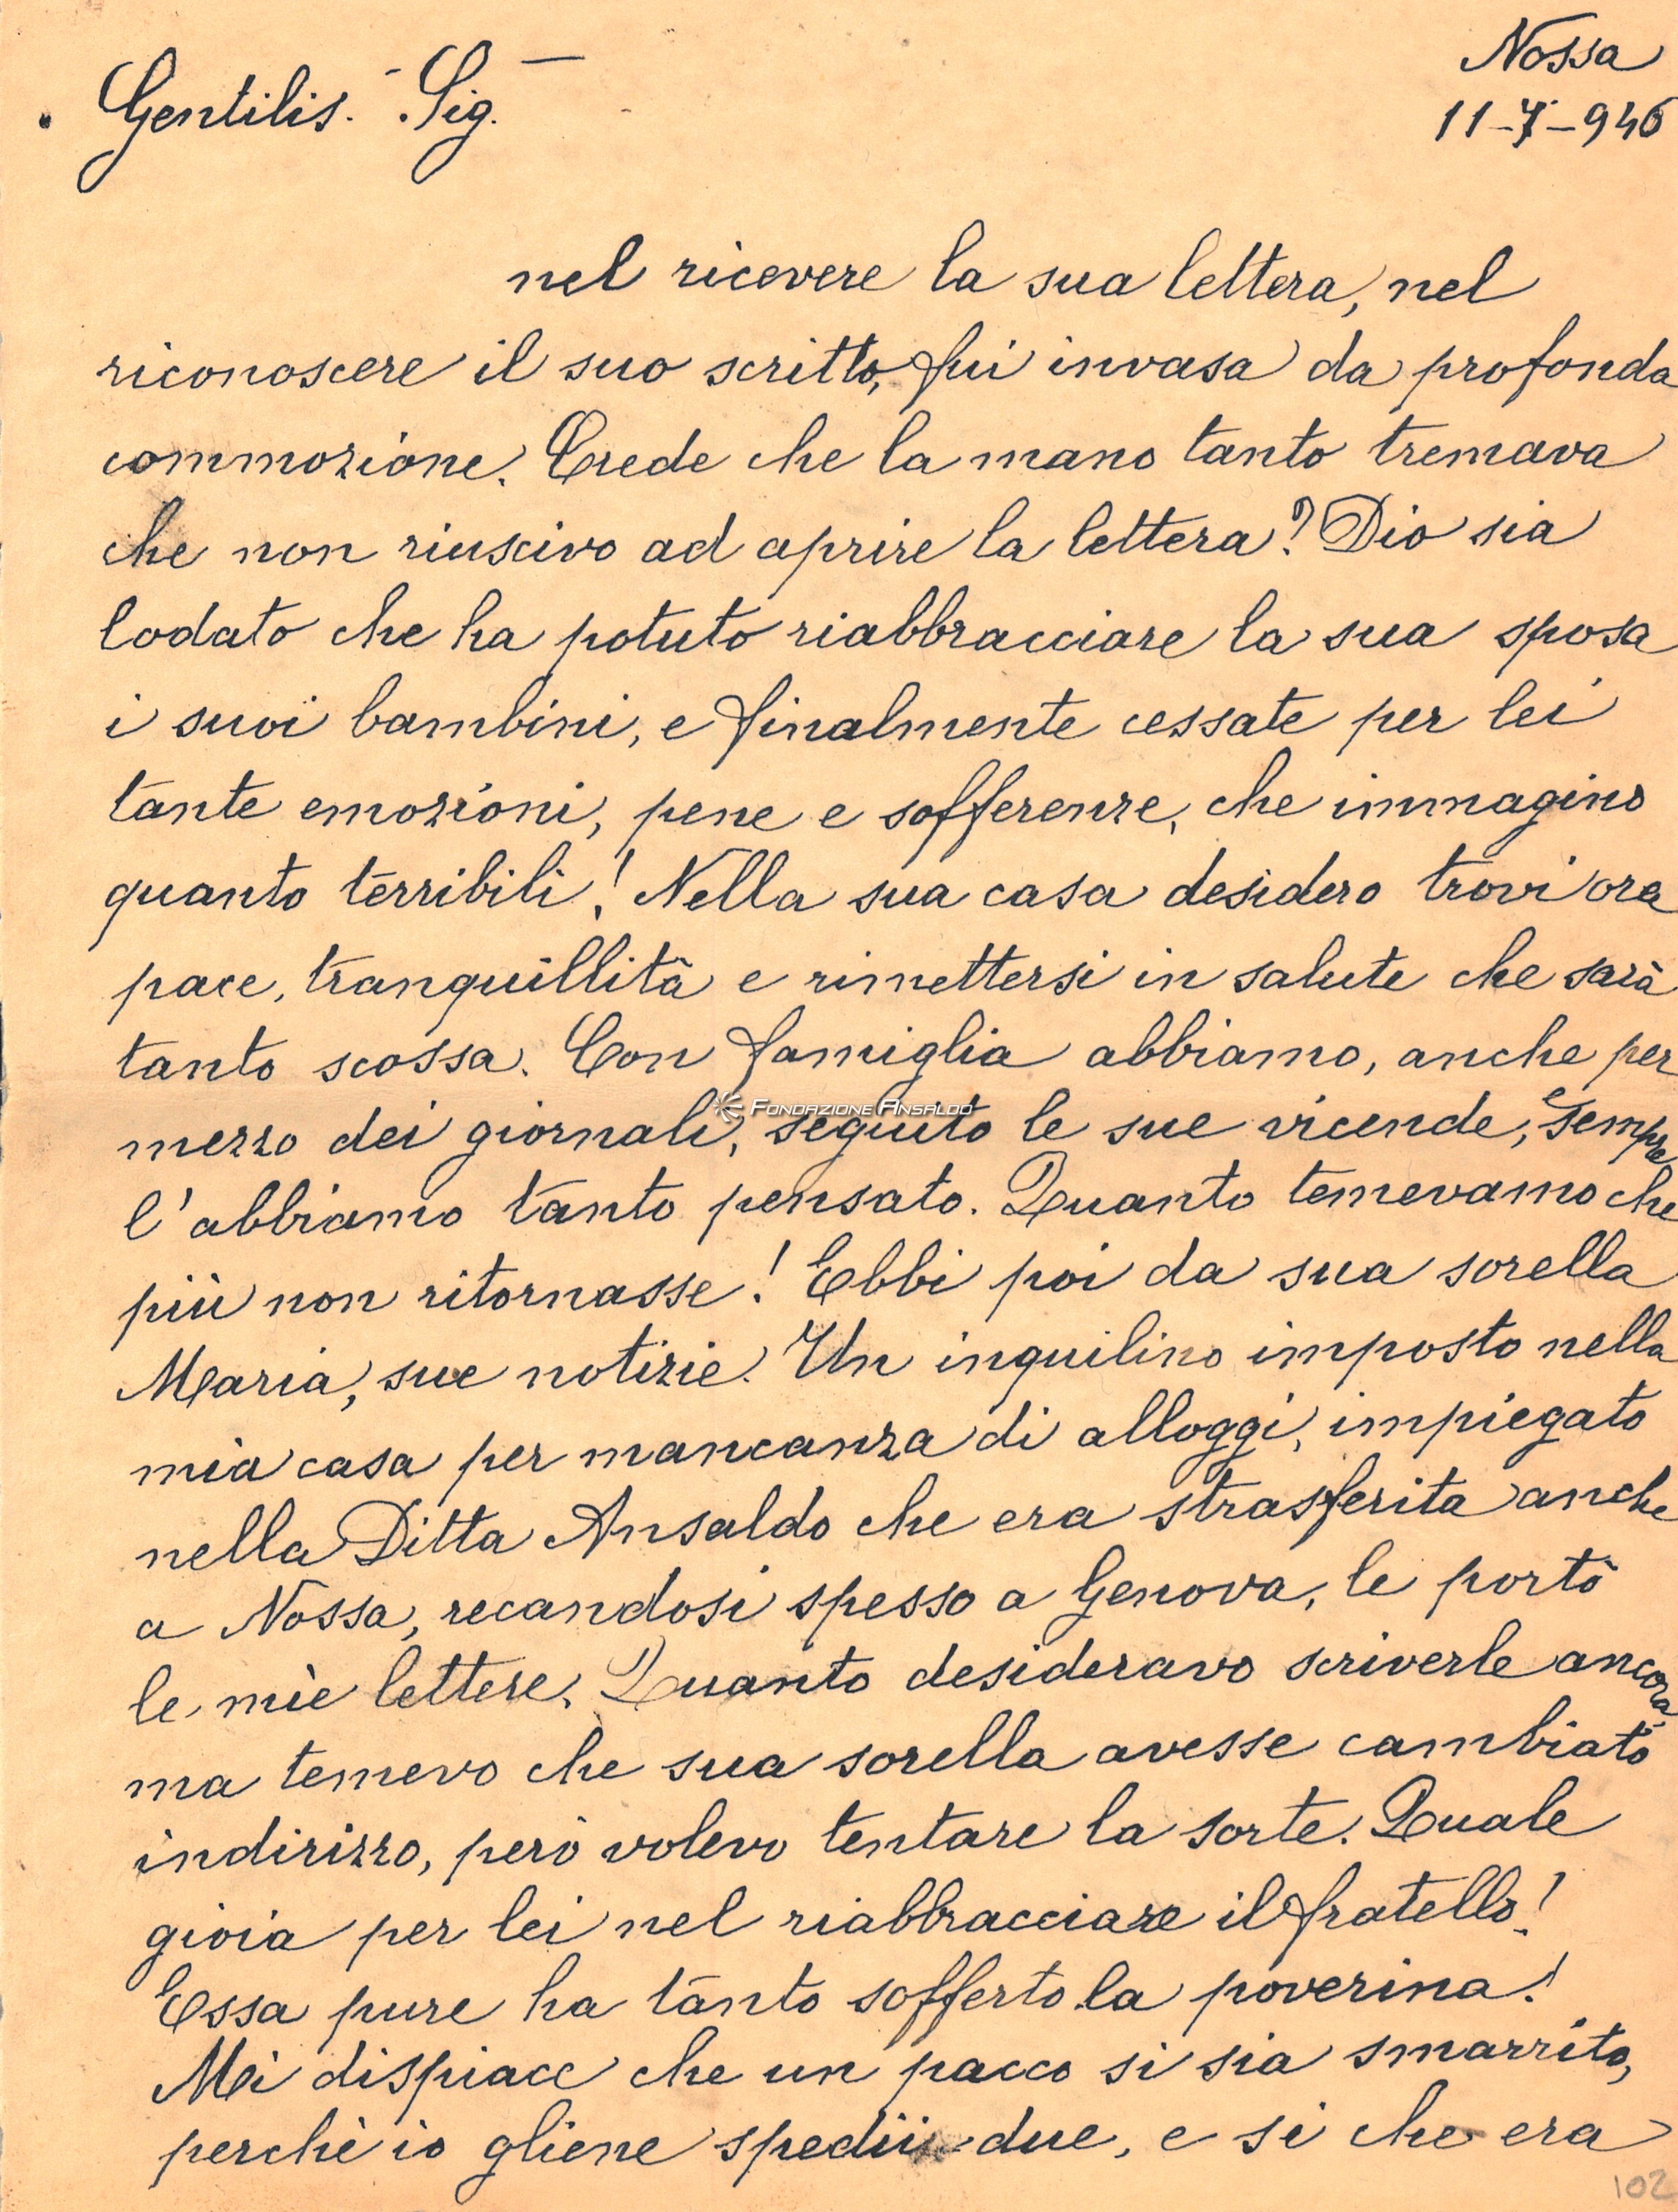 Nossa
11-7-946
Gentilis. Sig.
nel ricevere la sua lettera, nel
riconoscere il suo scritto, fui invasa da profonda
commozione. Crede che la mano tanto tremava
che non riuscivo ad aprire la lettera? Dio sia
lodato che ha potuto riabbracciare la sua sposa
i suoi bambini, e finalmente cessate per lei
tante emozioni, pene e sofferenze, che immagino
quanto terribili! Nella sua casa desidero trovi ora
pace, tranquillità e rimettersi in salute che sarà
tanto scossa. Con famiglia abbiamo, anche per
FONDAZIONE ANSALDO
mezzo dei giornali, seguito le sue vicende, e sempre
l'abbiamo tanto pensato. Quanto temevamo che
più non ritornasse! Ebbi poi da sua sorella
Maria, sue notizie. Un inquilino imposto nella
mia casa per mancanza di alloggi, impiegato
nella Ditta Ansaldo che era strasferita anche
a Nossa, recandosi spesso a Genova, le portò
le mie lettere. Quanto desideravo scriverle ancora,
ma temevo che sua sorella avesse cambiato
indirizzo, però volevo tentare la sorte. Quale
gioia per lei nel riabbracciare il fratello!
Essa pure ha tanto sofferto la poverina!
Mi dispiace che un pacco si sia smarrito,
perchè io gliene spedii due, e si che era
102